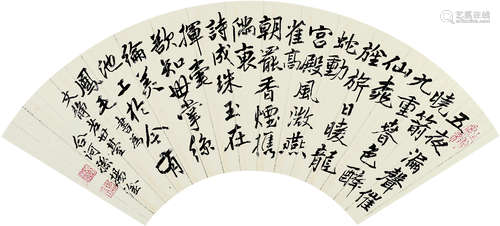 五夜漏聲催
曉箭
九重春色醉
仙桃
旌旗日暖龍
蛇動
宮殿風微燕
雀高
朝罷香煙攜
滿袖
詩成珠玉在
揮毫
欲知世掌絲
綸美
池上於今有
鳳毛
書為
文
合河